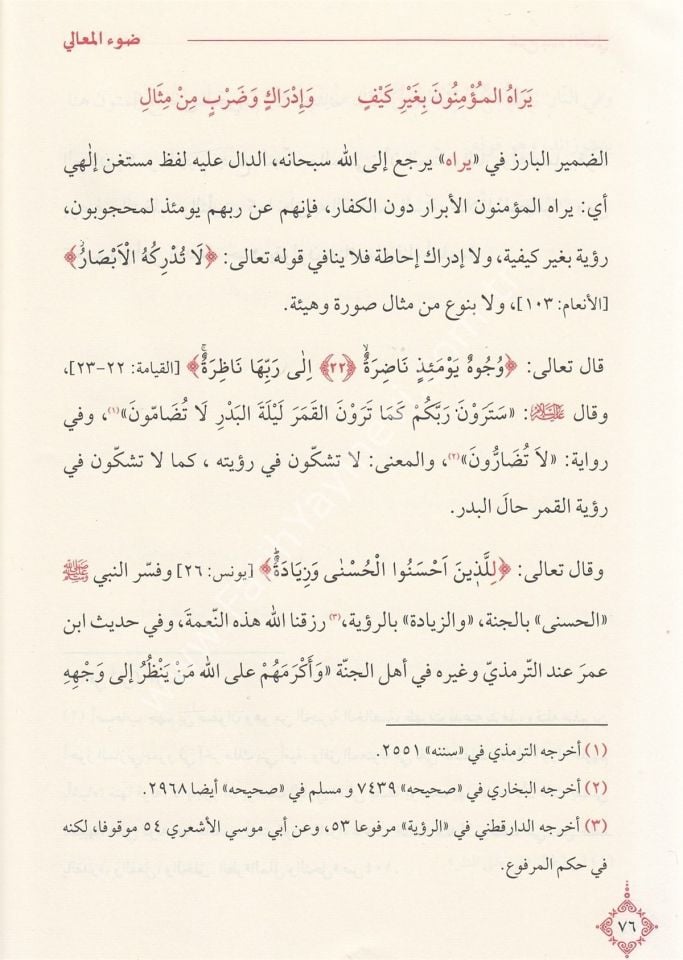 ضوء المعالي
يَرَاهُ المؤْمِنُونَ بِغَيْرِ كَيْفٍ وَإِدْرَاكٍ وَضَرْبٍ مِنْ مِثَالِ
الضمير البارز في «يراه» يرجع إلى الله سبحانه، الدال عليه لفظ مستغن إلٰهي
أي: يراه المؤمنون الأبرار دون الكفار، فإنهم عن ربهم يومئذ لمحجوبون،
رؤية بغير كيفية، ولا إدراك إحاطة فلا ينافي قوله تعالى: ﴿لَا تُدْرِكُهُ الْاَبْصَارُۘ﴾
[الأنعام: ١٠٣]، ولا بنوع من مثال صورة وهيئة.
قال تعالى: ﴿وُجُوهٌ يَوْمَئِذٍ نَاضِرَةٌۙ ﴿٢٢﴾ اِلٰى رَبِّهَا نَاظِرَةٌۚ﴾ [القيامة: ٢٢-٢٣]،
وقال ﷺ: «سَتَرَوْنَ رَبَّكُمْ كَمَا تَرَوْنَ القَمَرَ لَيْلَةَ البَدْرِ لَا تُضَامّونَ»(١)، وفي
رواية: «لاَ تُضَارُّونَ»(٢)، والمعنى: لا تشكّون في رؤيته ، كما لا تشكّون في
رؤية القمر حالَ البدر.
وقال تعالى: ﴿لِلَّذ۪ينَ اَحْسَنُوا الْحُسْنٰى وَزِيَادَةٌۜ﴾ [يونس: ٢٦] وفسّر النبي ﷺ
«الحسنى» بالجنة، «والزيادة» بالرؤية،(٣) رزقنا الله هذه النّعمةَ، وفي حديث ابن
عمرَ عند التّرمذيّ وغيره في أهل الجنّة «وَأَكْرَمَهُمْ على الله مَنْ يَنْظُرُ إلى وَجْهِهِ
(١) أخرجه الترمذي في «سننه» ٢٥٥١.
(٢) أخرجه البخاري في «صحيحه» ٧٤٣٩ و مسلم في «صحيحه» أيضا ٢٩٦٨.
(٣) أخرجه الدارقطني في «الرؤية» مرفوعا ٥٣، وعن أبي موسي الأشعري ٥٤ موقوفا، لكنه
في حكم المرفوع.
٧٦